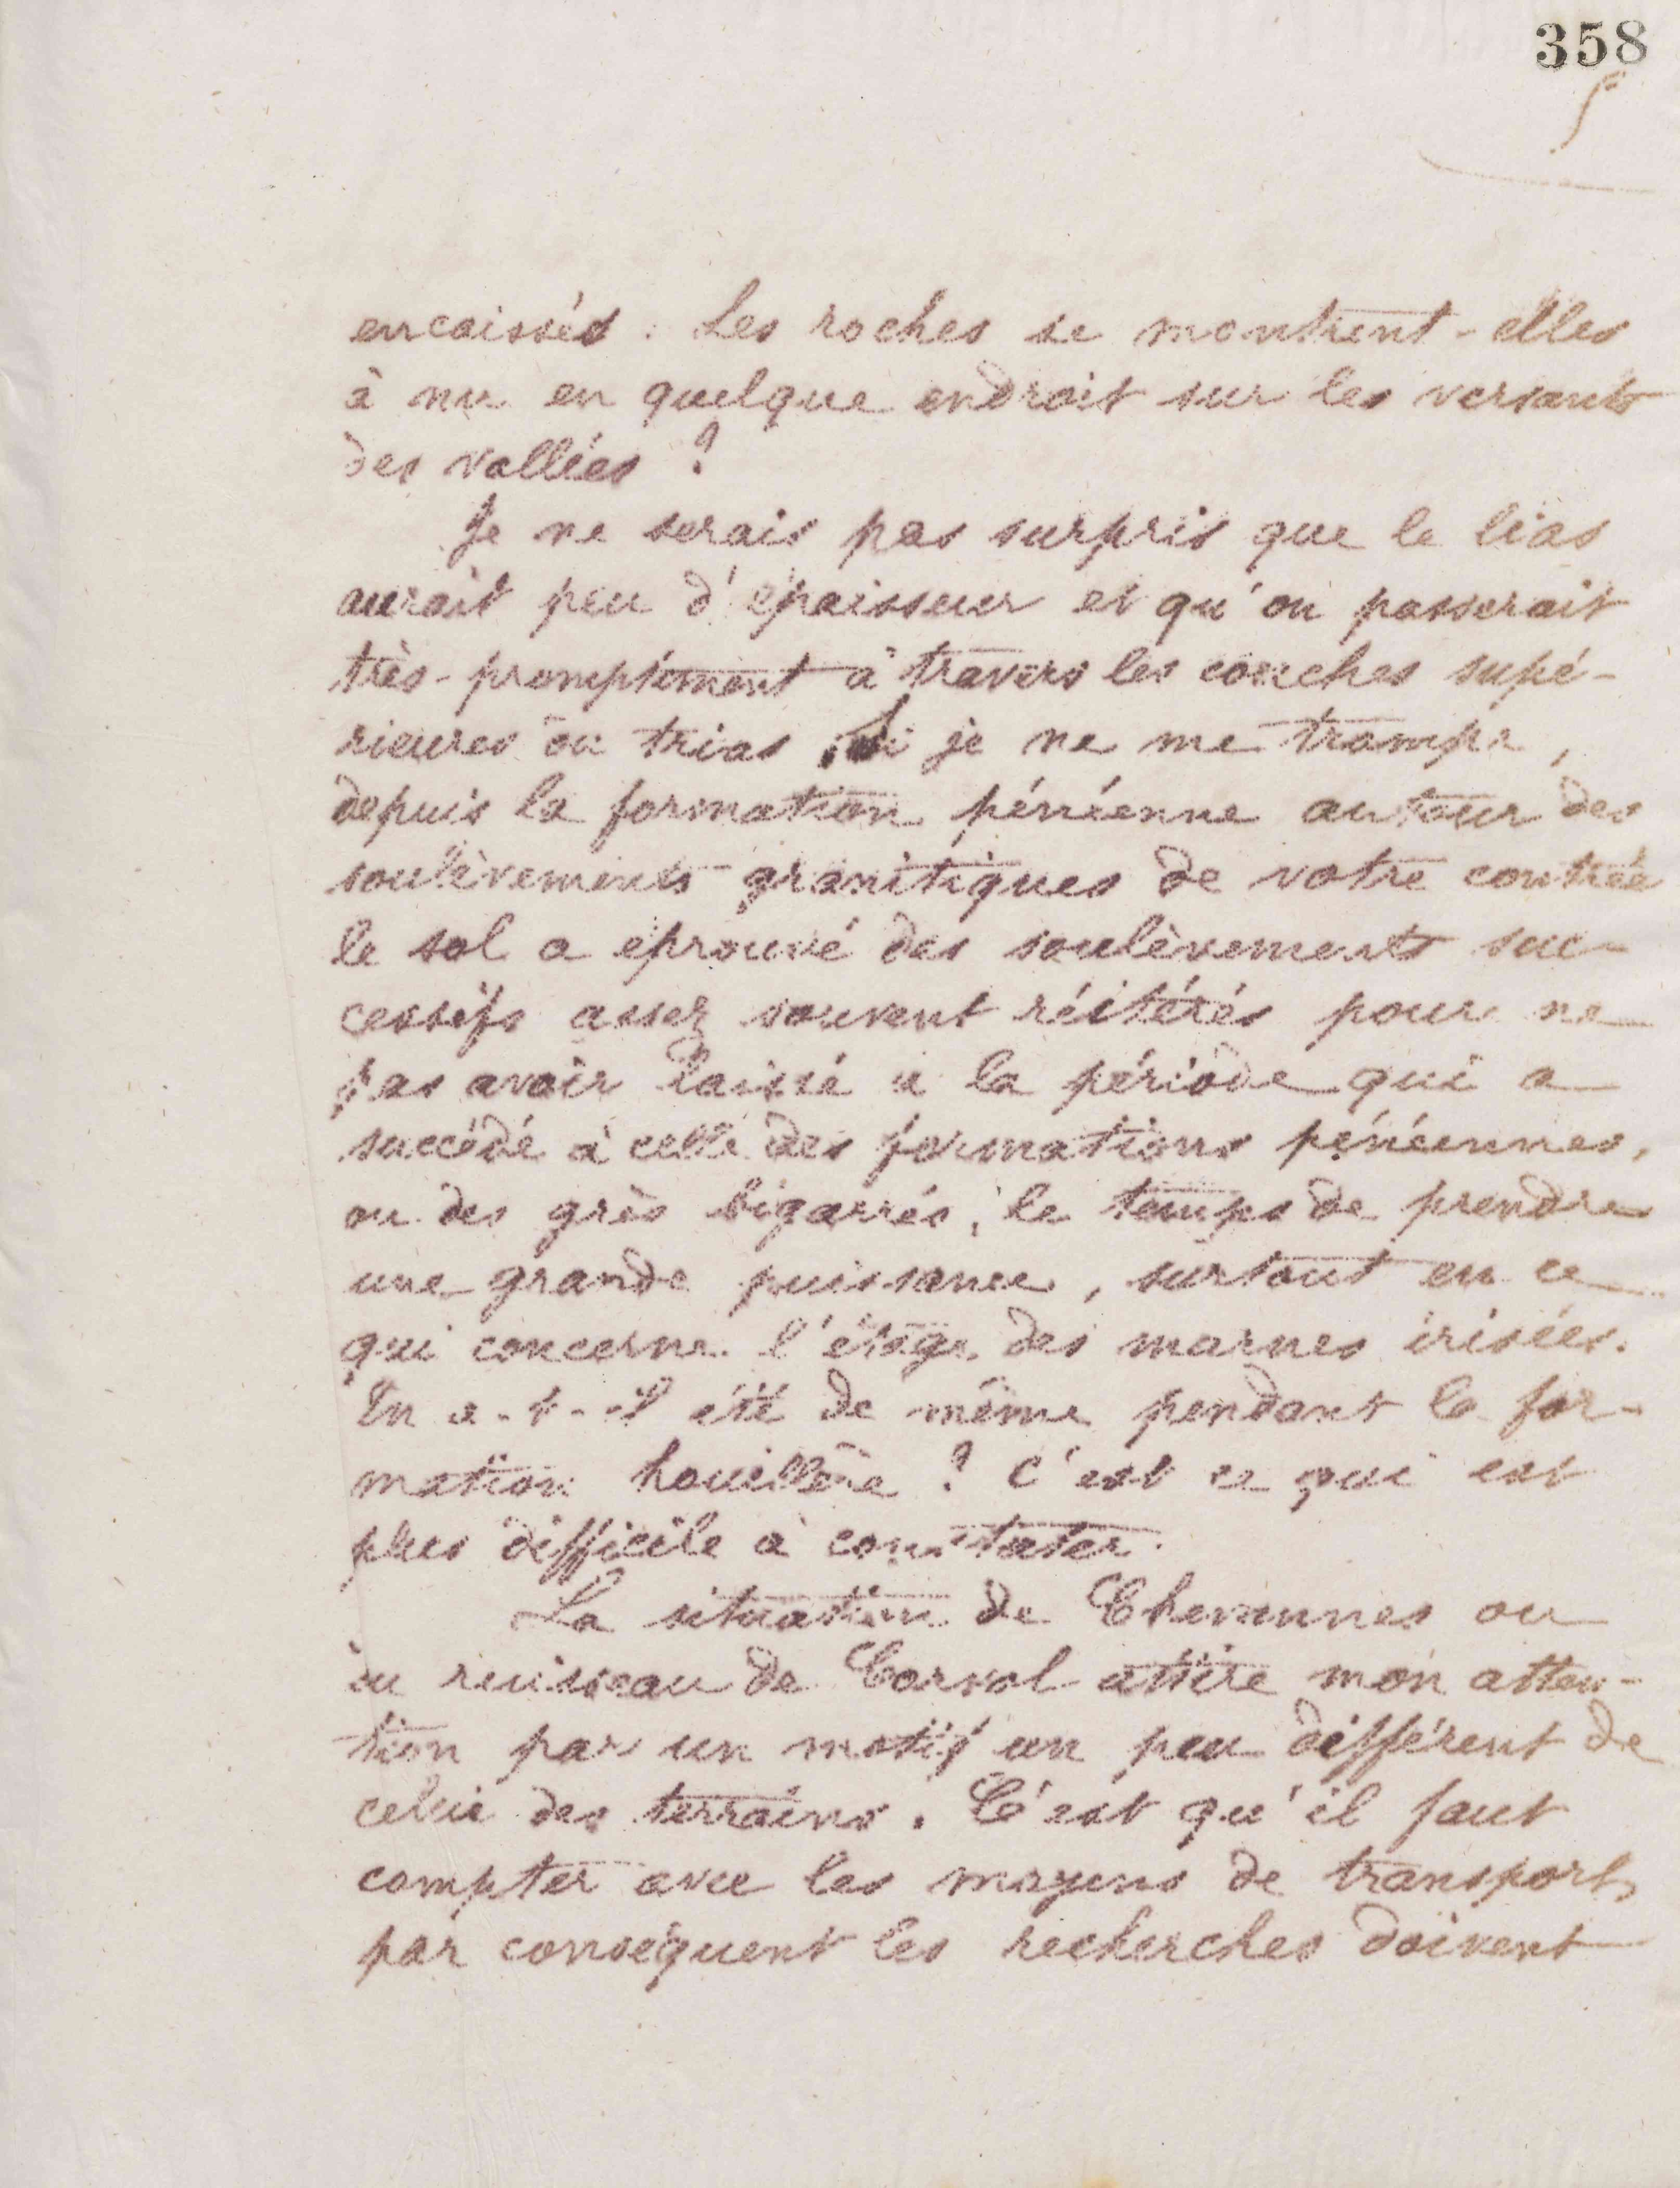 358
encaissés. Les roches se montrent-elles
à nu en quelque endroit sur les versants
des vallées ?
Je ne serais pas surpris que le lias
aurait peu d'épaisseur et qu'on passerait
très-promptement à travers les couches supé-
rieures du trias. Si je ne me trompe,
depuis la formation pénéenne autour des
soulèvements granitiques de votre contrée
le sol a éprouvé des soulèvements suc-
cessifs assez souvent réitérés pour ne
pas avoir laissé à la période qui a
succédé à celle des formations pénéennes,
ou des grès bigarrés, le temps de prendre
une grande puissance, surtout en ce
qui concerne l'étage des marnes irisées.
En a-t-il été de même pendant la for-
mation houillère ? C'est ce qui est
plus difficile à constater.
La situation de Chevannes ou
du ruisseau de Corvol attire mon atten-
tion par un motif un peu différent de
celui des terrains. C'est qu'il faut
compter avec les moyens de transport,
par conséquent les recherches doivent